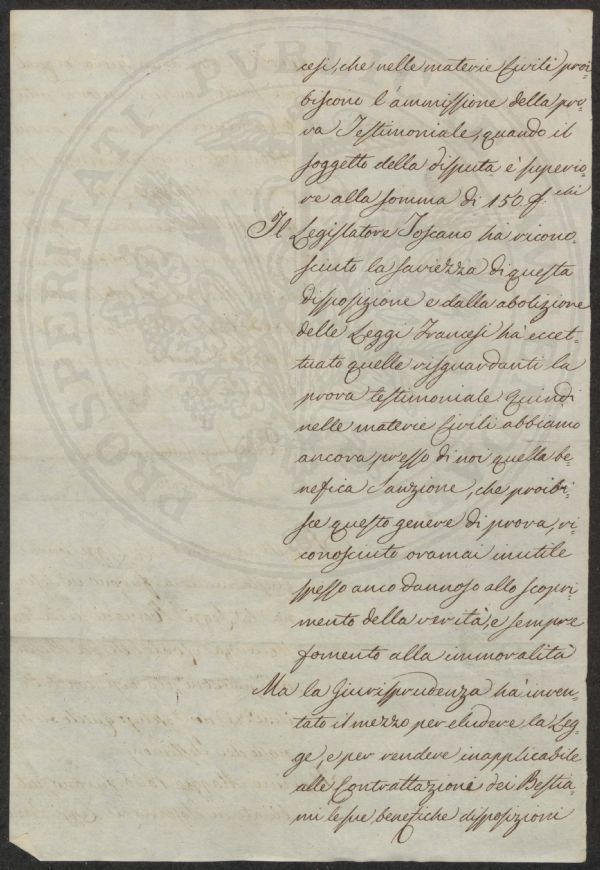 cesi, che nelle materie Civili proi-
biscono l'ammissione della pro-
va Testimoniale, quando il
soggetto della disputa è superio-
re alla somma di 150 f.chi
Il Legislatore Toscano ha ricono-
sciuto la saviezza di questa
disposizione e dalla abolizione
delle Leggi Francesi ha eccet-
tuato quelle risguardanti la
prova testimoniale Quindi
nelle materie Civili abbiamo
ancora presso di noi quella be-
nefica Sanzione, che proibi-
sce questo genere di prova, ri-
conosciuto oramai inutile
spesso anco dannoso allo scopri-
mento della verità, e sempre
fomento alla immoralità
Ma la Giurisprudenza ha inven-
tato il mezzo per eludere la Leg-
ge, e per rendere inapplicabile
alle Contrattazioni dei Bestia-
mi le sue benefiche disposizioni
PROSPERITATI PUBL